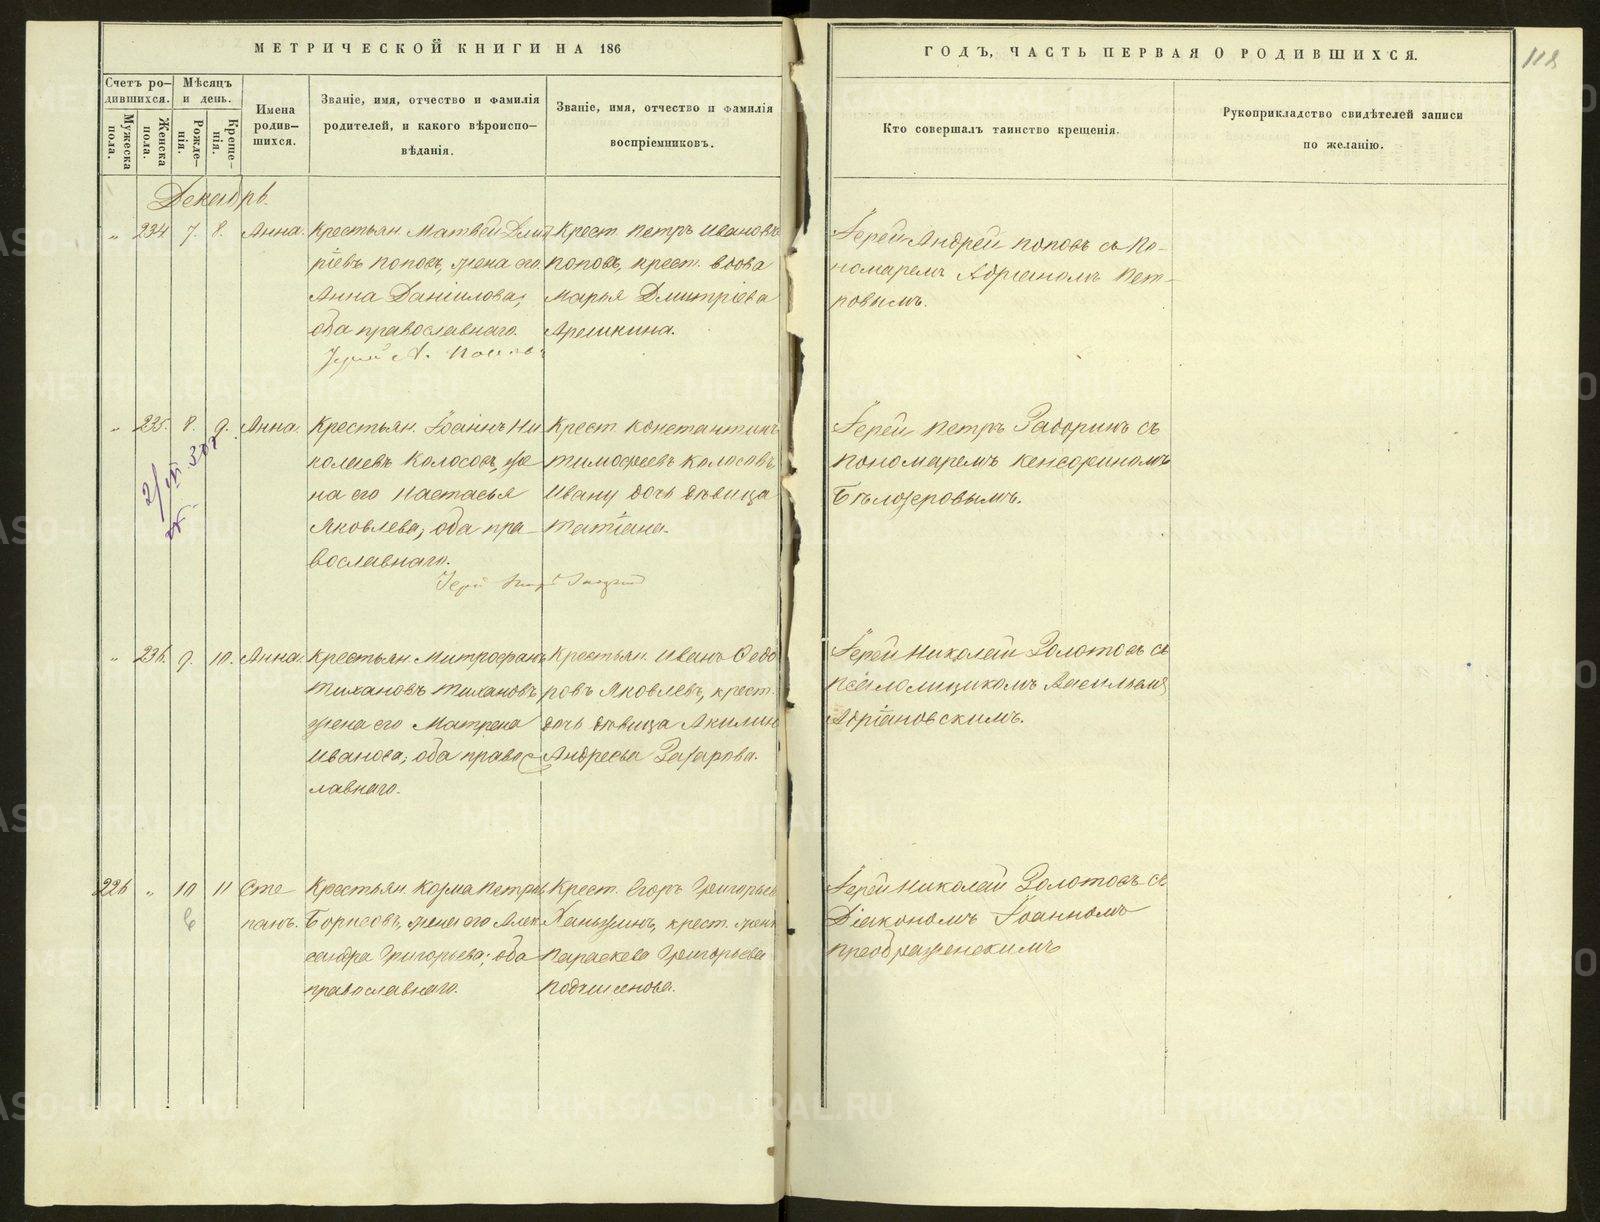 МЕТРИЧЕСКОЙ КНИГИ НА 186
ГОДЪ, ЧАСТЬ ПЕРВАЯ О РОДИВШИХСЯ.
118
Счетъ ро-
дившихся.
Мужеска
пола.
Женска
пола.
Мѣсяцъ
и день.
Рожде-
нія.
Креще-
нія.
Имена
родив-
шихся.
Званіе, имя, отчество и фамилія
родителей, и какого вѣроиспо-
вѣданія.
Званіе, имя, отчество и фамилія
воспріемниковъ.
Кто совершалъ таинство крещенія.
Рукоприкладство свидѣтелей записи
по желанію.
Декабрь.
„ 234 7. 8. Анна.
Крестьян. Матвѣй Дмит
ріевъ Поповъ, жена его
Анна Даніилова;
оба православнаго.
Крест. Петръ Ивановъ
Поповъ, крест. вдова
Марья Дмитріева
Іерей А. Поповъ
Іерей Андрей Поповъ съ По-
номаремъ Адріаномъ Пет-
ровымъ.
„ 235. 8. 9. Анна.
Крестьян. Іоаннъ Ни
колаевъ Колосовъ, же
на его Настасья
Яковлева; оба пра-
вославнаго.
Крест. Константинъ
Тимофеевъ Колосовъ
Ивану дочь дѣвица
Татіана.
Іерей Петръ Задоринъ съ
Пономаремъ Кенсориномъ
Бѣлозеровымъ.
„ 236. 9. 10. Анна.
Крестьян. Митрофанъ
Тихановъ Тихановъ
жена его Матрена
Иванова; оба правос
лавнаго.
Крестьян. Иванъ Ѳедо
ровъ Яковлевъ, крест.
дочь дѣвица Акилин
Андреева Захарова.
Іерей Николай Золотовъ съ
Псаломщикомъ Василіемъ
Адріановскимъ.
226 „ 10 11 Сте
панъ.
Крестьян. Козма Петровъ
Борисовъ, жена его Алек
сандра Григорьева; оба
православнаго.
Крест. Егоръ Григорьев
Ханжинъ, крест. жена
Параскева Григорьева
Іерей Николай Золотовъ съ
Діакономъ Іоанномъ
Преображенскимъ
METRIKI.GASO-URAL.RU